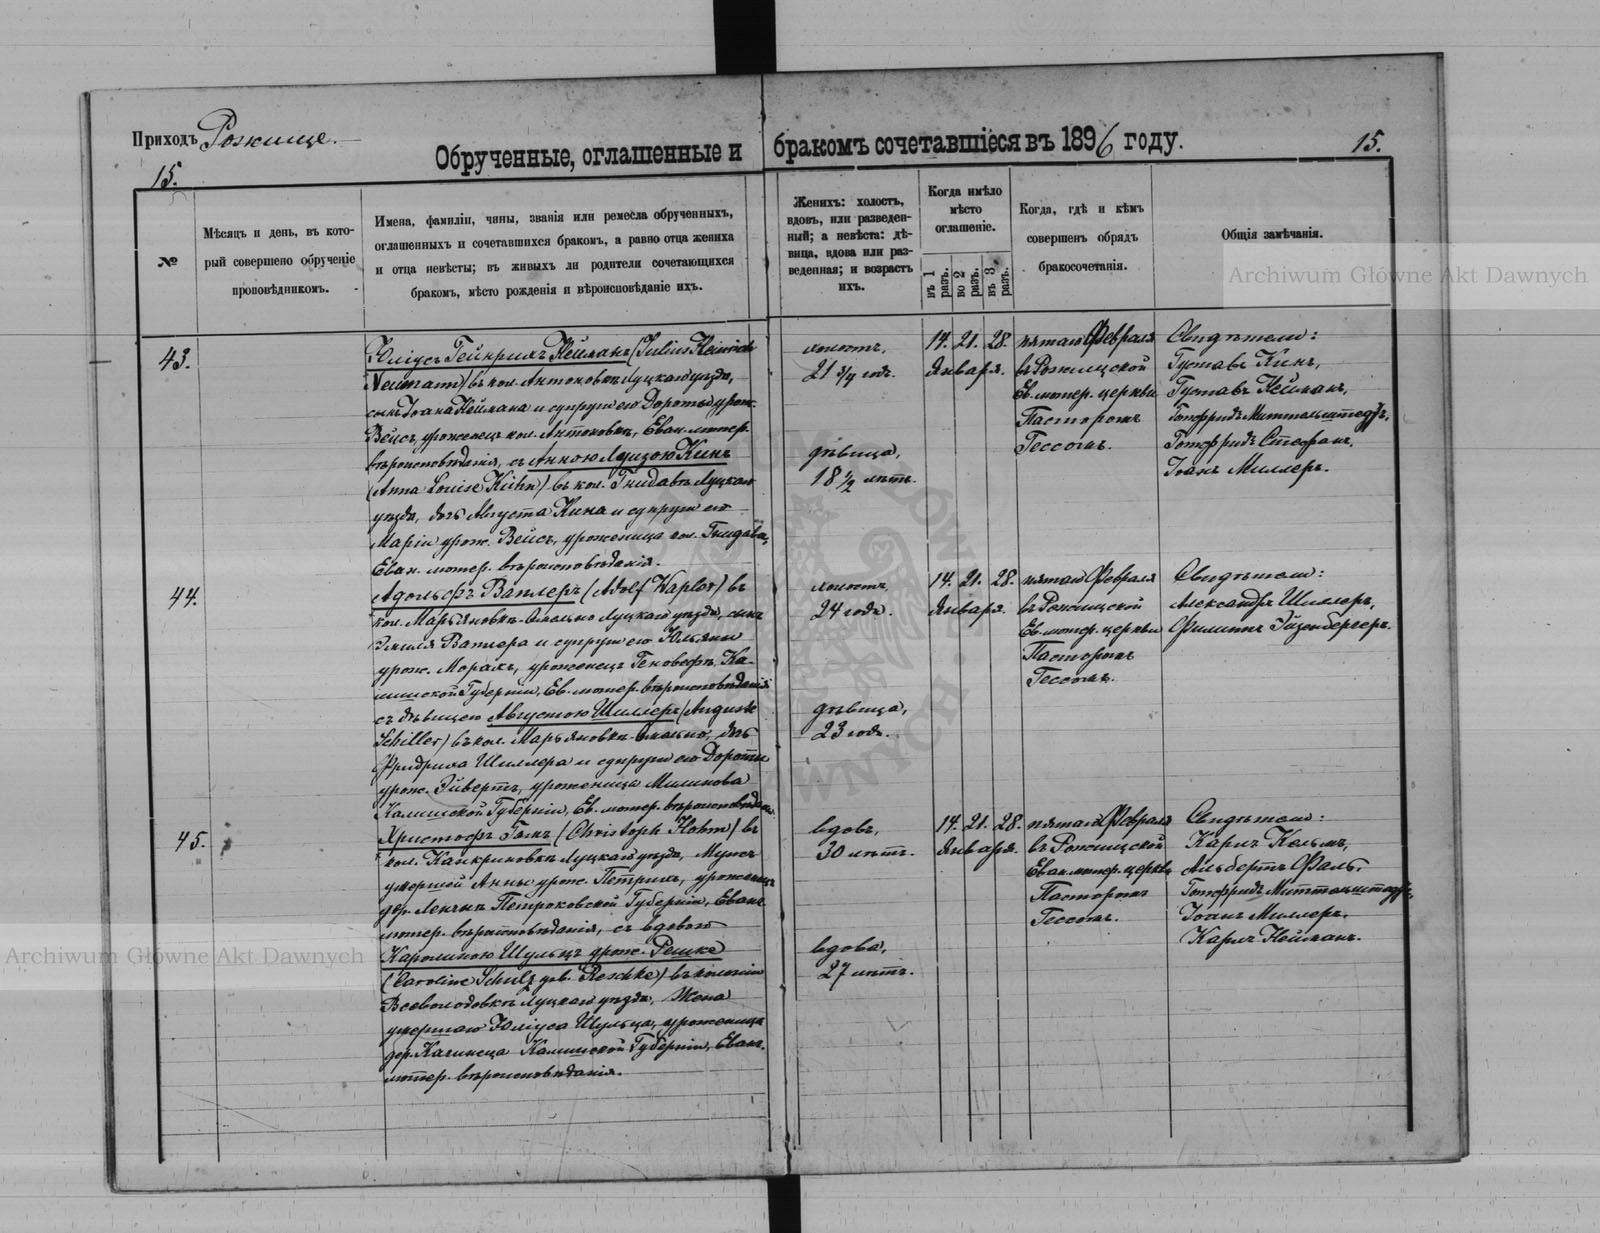 Приходъ Рожище.
15.
Обрученные, оглашенные и бракомъ сочетавшіеся въ 1896 году.
15.
№
Мѣсяцъ и день, въ кото-
рый совершено обрученіе
проповѣдникомъ.
Имена, фамиліи, чины, званія или ремесла обрученныхъ,
оглашенныхъ и сочетавшихся бракомъ, а равно отца жениха
и отца невѣсты; въ живыхъ ли родители сочетающихся
бракомъ, мѣсто рожденія и вѣроисповѣданіе ихъ.
Женихъ: холостъ,
вдовъ, или разведен-
ный; а невѣста: дѣ-
вица, вдова или раз-
веденная; и возрастъ
ихъ.
Когда имѣло
мѣсто
оглашеніе.
въ 1 разъ.
во 2 разъ.
въ 3 разъ.
Когда, гдѣ и кѣмъ
совершенъ обрядъ
бракосочетанія.
Общія замѣчанія.
Archiwum Główne Akt Dawnych
43.
Юліусъ Гейнрихъ Нейманъ (Julius Heinrich
Neumann) въ кол. Антоновкѣ Луцкаго уѣзда,
сынъ Іоана Неймана и супруги его Доротеи урож.
Вейсъ, уроженецъ кол. Антоновки, Еван. лютер.
вѣроисповѣданія, съ Анною Луизою Кинъ
(Anna Louise Kühn) въ кол. Гнидавѣ Луцкаго
уѣзда, дочь Августа Кина и супруги его
Маріи урож. Вейсъ, уроженица кол. Гнидавы,
Еван. лютер. вѣроисповѣданія.
холостъ,
21 3/4 годъ.
дѣвица,
18 1/2 лѣтъ.
14. 21. 28.
Января.
пятаго Февраля
въ Рожищской
Ев. лютер. церкви
Пасторомъ
Гессомъ.
Свидѣтели:
Густавъ Кинъ,
Густавъ Нейманъ,
Готфридъ Миттельштедтъ,
Готфридъ Стефанъ,
Іоанъ Миллеръ.
44.
Адольфъ Ваплеръ (Adolf Wapler) въ
кол. Марьяновкѣ-Смольно Луцкаго уѣзда, сынъ
Эмиля Ваплера и супруги его Юльяны
урож. Морахъ, уроженецъ Геновефы, Ка-
лишской Губерніи, Ев. лютер. вѣроисповѣданія
съ дѣвицею Августою Шиллеръ (Auguste
Schiller) въ кол. Марьяновкѣ-Смольно, дочь
Фридриха Шиллера и супруги его Доротеи
урож. Эйвертъ, уроженица Милинова
Калишской Губерніи, Ев. лютер. вѣроисповѣданія
холостъ,
24 года.
дѣвица,
23 года.
14. 21. 28.
Января.
пятаго Февраля
въ Рожищской
Ев. лютер. церкви
Пасторомъ
Гессомъ.
Свидѣтели:
Александръ Шиллеръ,
Филиппъ Эйзенбергеръ.
45.
Христофъ Гомъ (Christoph Hohm) въ
кол. Канкриновкѣ Луцкаго уѣзда, Мужъ
умершей Анны урож. Петрихъ, уроженецъ
дер. Петроковской Губерніи, Еван.
лютер. вѣроисповѣданія, съ вдовою
Каролиною Шульцъ урож. Решке
(Caroline Schulz geb. Reschke) въ колоніи
Всеволодовкѣ Луцкаго уѣзда, Жена
умершаго Юліуса Шульца, уроженица
дер. Калишской Губерніи, Еван.
лютер. вѣроисповѣданія.
вдовъ,
30 лѣтъ.
вдова,
27 лѣтъ.
14. 21. 28.
Января.
пятаго Февраля
въ Рожищской
Еван. лютер. церкви
Пасторомъ
Гессомъ.
Свидѣтели:
Карлъ Кельмъ,
Альбертъ Фаль,
Готфридъ Миттельштедтъ,
Іоанъ Миллеръ.
Карлъ Нейманъ.
Archiwum Główne Akt Dawnych